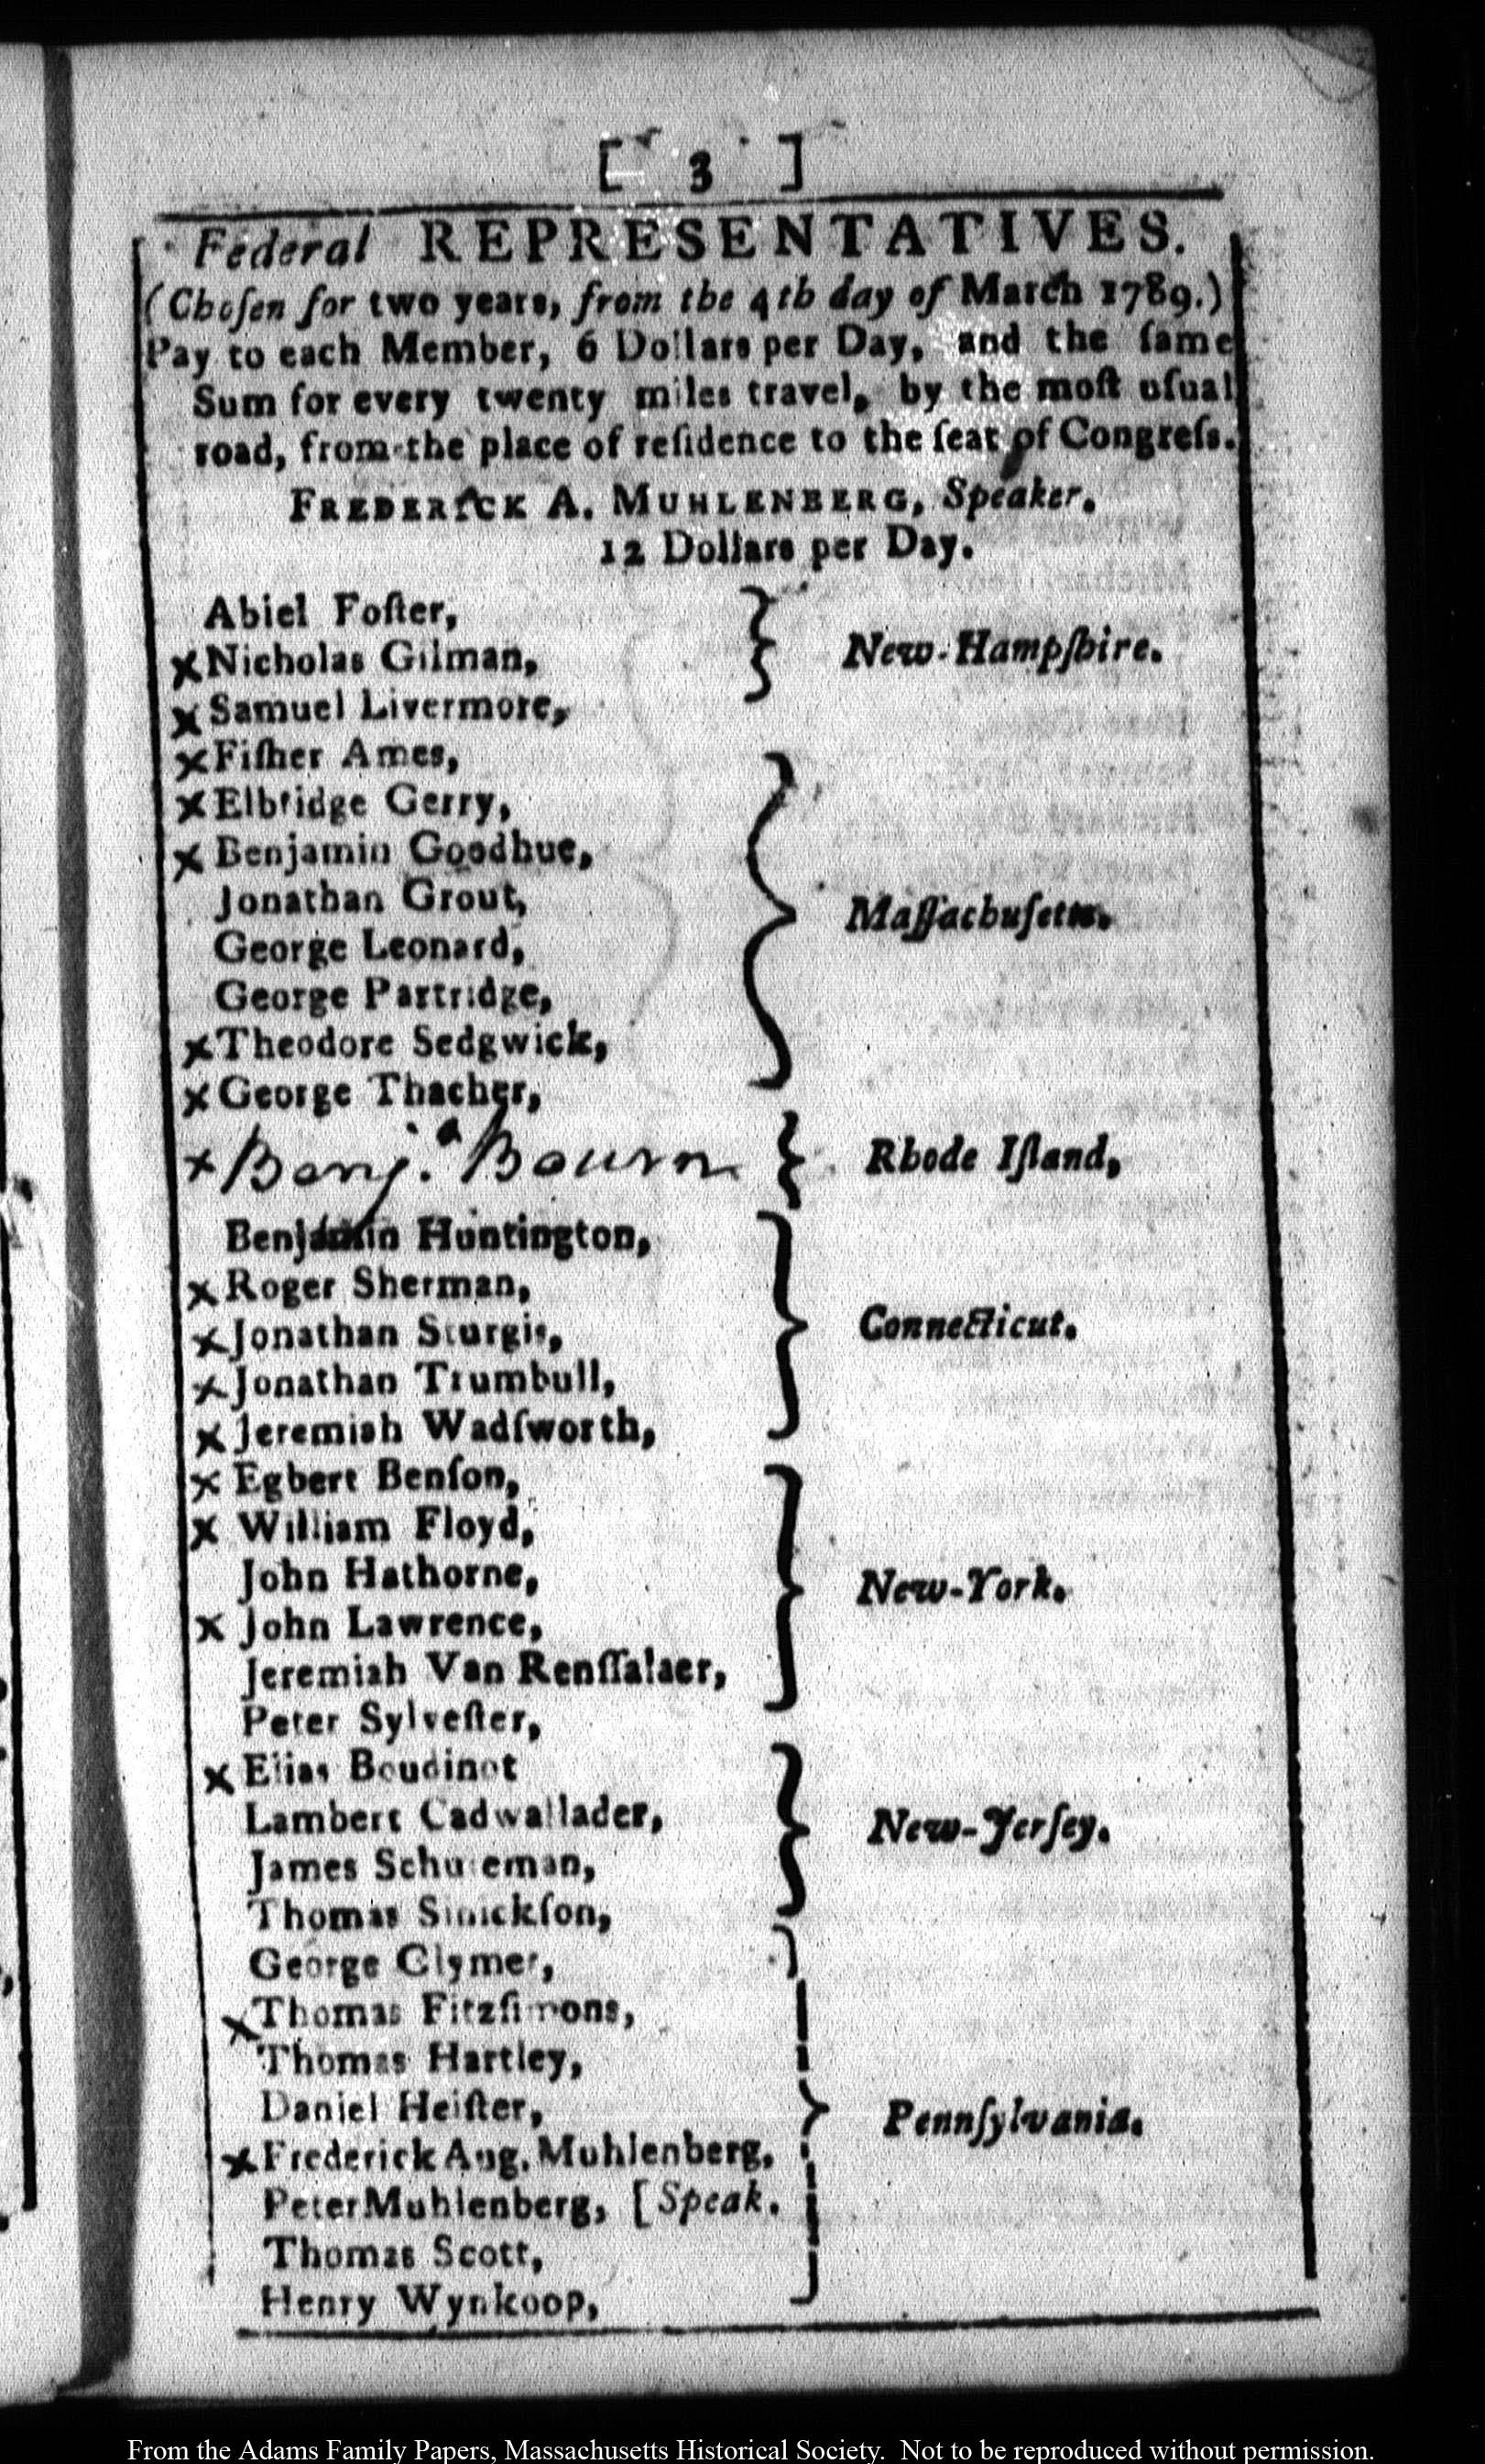 [ 3 ]
Federal REPRESENTATIVES.
(Choſen for two years, from the 4th day of March 1789.)
Pay to each Member, 6 Dollars per Day, and the ſame
Sum for every twenty miles travel, by the moſt uſual
road, from the place of reſidence to the ſeat of Congreſs.
FREDERICK A. MUHLENBERG, Speaker.
12 Dollars per Day.
Abiel Foſter,
x Nicholas Gilman, } New-Hampſhire.
x Samuel Livermore,
x Fiſher Ames,
x Elbridge Gerry,
x Benjamin Goodhue,
Jonathan Grout, } Maſſachuſetts.
George Leonard,
George Partridge,
x Theodore Sedgwick,
x George Thacher,
x Benj.a Bourn } Rhode Iſland,
Benjamin Huntington,
x Roger Sherman,
x Jonathan Sturgis, } Connecticut.
x Jonathan Trumbull,
x Jeremiah Wadſworth,
x Egbert Benſon,
x William Floyd,
John Hathorne, } New-York.
x John Lawrence,
Jeremiah Van Renſſalaer,
Peter Sylveſter,
x Elias Boudinot
Lambert Cadwallader, } New-Jerſey.
James Schureman,
Thomas Sinickſon,
George Clymer,
x Thomas Fitzſimons,
Thomas Hartley,
Daniel Heiſter, } Pennſylvania.
x Frederick Aug. Muhlenberg,
Peter Muhlenberg, [Speak.
Thomas Scott,
Henry Wynkoop,
From the Adams Family Papers, Massachusetts Historical Society. Not to be reproduced without permission.